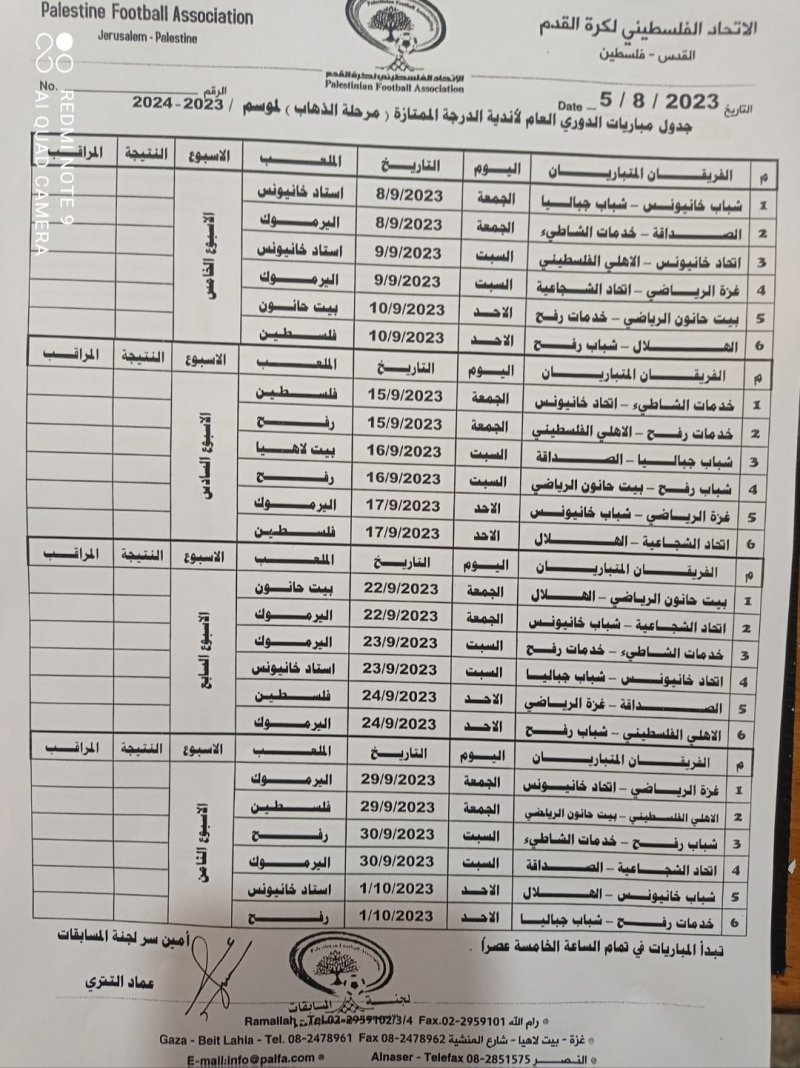 Palestine Football Association
Jerusalem - Palestine
الاتحاد الفلسطيني لكرة القدم
القدس - فلسطين
الإتحاد الفلسطيني لكرة القدم
Palestinian Football Association
No. الرقم
التاريخ 5 / 8 / 2023 Date
جدول مباريات الدوري العام لأندية الدرجة الممتازة ( مرحلة الذهاب ) لموسم / 2023-2024
REDMI NOTE 9
AI QUAD CAMERA
م الفريقان المتباريان اليوم التاريخ الملعب الاسبوع النتيجة المراقب
الاسبوع الخامس
1 شباب خانيونس - شباب جباليا الجمعة 8/9/2023 استاد خانيونس
2 الصداقة - خدمات الشاطيء الجمعة 8/9/2023 اليرموك
3 اتحاد خانيونس - الاهلي الفلسطيني السبت 9/9/2023 استاد خانيونس
4 غزة الرياضي - اتحاد الشجاعية السبت 9/9/2023 اليرموك
5 بيت حانون الرياضي - خدمات رفح الاحد 10/9/2023 بيت حانون
6 الهلال - شباب رفح الاحد 10/9/2023 فلسطين
م الفريقان المتباريان اليوم التاريخ الملعب الاسبوع النتيجة المراقب
الاسبوع السادس
1 خدمات الشاطيء - اتحاد خانيونس الجمعة 15/9/2023 فلسطين
2 خدمات رفح - الاهلي الفلسطيني الجمعة 15/9/2023 رفح
3 شباب جباليا - الصداقة السبت 16/9/2023 بيت لاهيا
4 شباب رفح - بيت حانون الرياضي السبت 16/9/2023 رفح
5 غزة الرياضي - شباب خانيونس الاحد 17/9/2023 اليرموك
6 اتحاد الشجاعية - الهلال الاحد 17/9/2023 فلسطين
م الفريقان المتباريان اليوم التاريخ الملعب الاسبوع النتيجة المراقب
الاسبوع السابع
1 بيت حانون الرياضي - الهلال الجمعة 22/9/2023 بيت حانون
2 اتحاد الشجاعية - شباب خانيونس الجمعة 22/9/2023 اليرموك
3 خدمات الشاطيء - خدمات رفح السبت 23/9/2023 اليرموك
4 اتحاد خانيونس - شباب جباليا السبت 23/9/2023 استاد خانيونس
5 الصداقة - غزة الرياضي الاحد 24/9/2023 فلسطين
6 الاهلي الفلسطيني - شباب رفح الاحد 24/9/2023 اليرموك
م الفريقان المتباريان اليوم التاريخ الملعب الاسبوع النتيجة المراقب
الاسبوع الثامن
1 غزة الرياضي - اتحاد خانيونس الجمعة 29/9/2023 اليرموك
2 الاهلي الفلسطيني - بيت حانون الرياضي الجمعة 29/9/2023 فلسطين
3 شباب رفح - خدمات الشاطيء السبت 30/9/2023 رفح
4 اتحاد الشجاعية - الصداقة السبت 30/9/2023 اليرموك
5 شباب خانيونس - الهلال الاحد 1/10/2023 استاد خانيونس
6 خدمات رفح - شباب جباليا الاحد 1/10/2023 رفح
تبدأ المباريات في تمام الساعة الخامسة عصراً .
أمين سر لجنة المسابقات
عماد التتري
لجنة المسابقات
Ramallah - Tel.02-2959102/3/4 Fax.02-2959101 رام الله
Gaza - Beit Lahia - Tel. 08-2478961 Fax 08-2478962 غزة - بيت لاهيا - شارع المنشية
E-mail:info@palfa.com Alnaser - Telefax 08-2851575 النصر